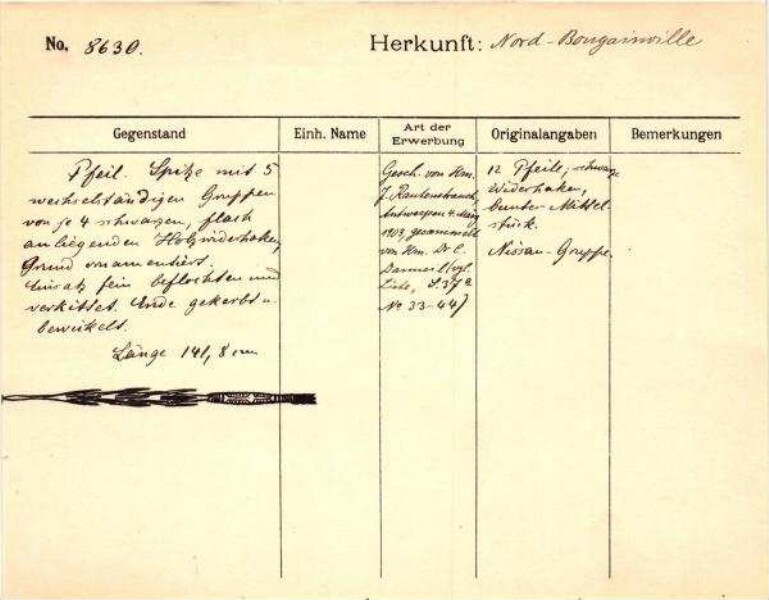 No. 8630.
Herkunft: Nord-Bougainville
Gegenstand
Einh. Name
Art der Erwerbung
Originalangaben
Bemerkungen
Pfeil. Spitze mit 5
wechselständigen Gruppen
von je 4 schwarzen, flach
anliegenden Holzwiderhaken,
Grund ornamentiert.
Einsatz fein beflochten und
verkittet. Ende gekerbt u.
bewickelt.
Länge 141,8 cm
Gesch. von Hrn.
J. Rautenstrauch,
Antwerpen 4. März
1903, gesammelt
von Hrn. Dr C.
Liste, S. 37
No 33-44)
12 Pfeile, schwarze
Widerhaken,
bunter Mittel-
stück.
Nissan-Gruppe.